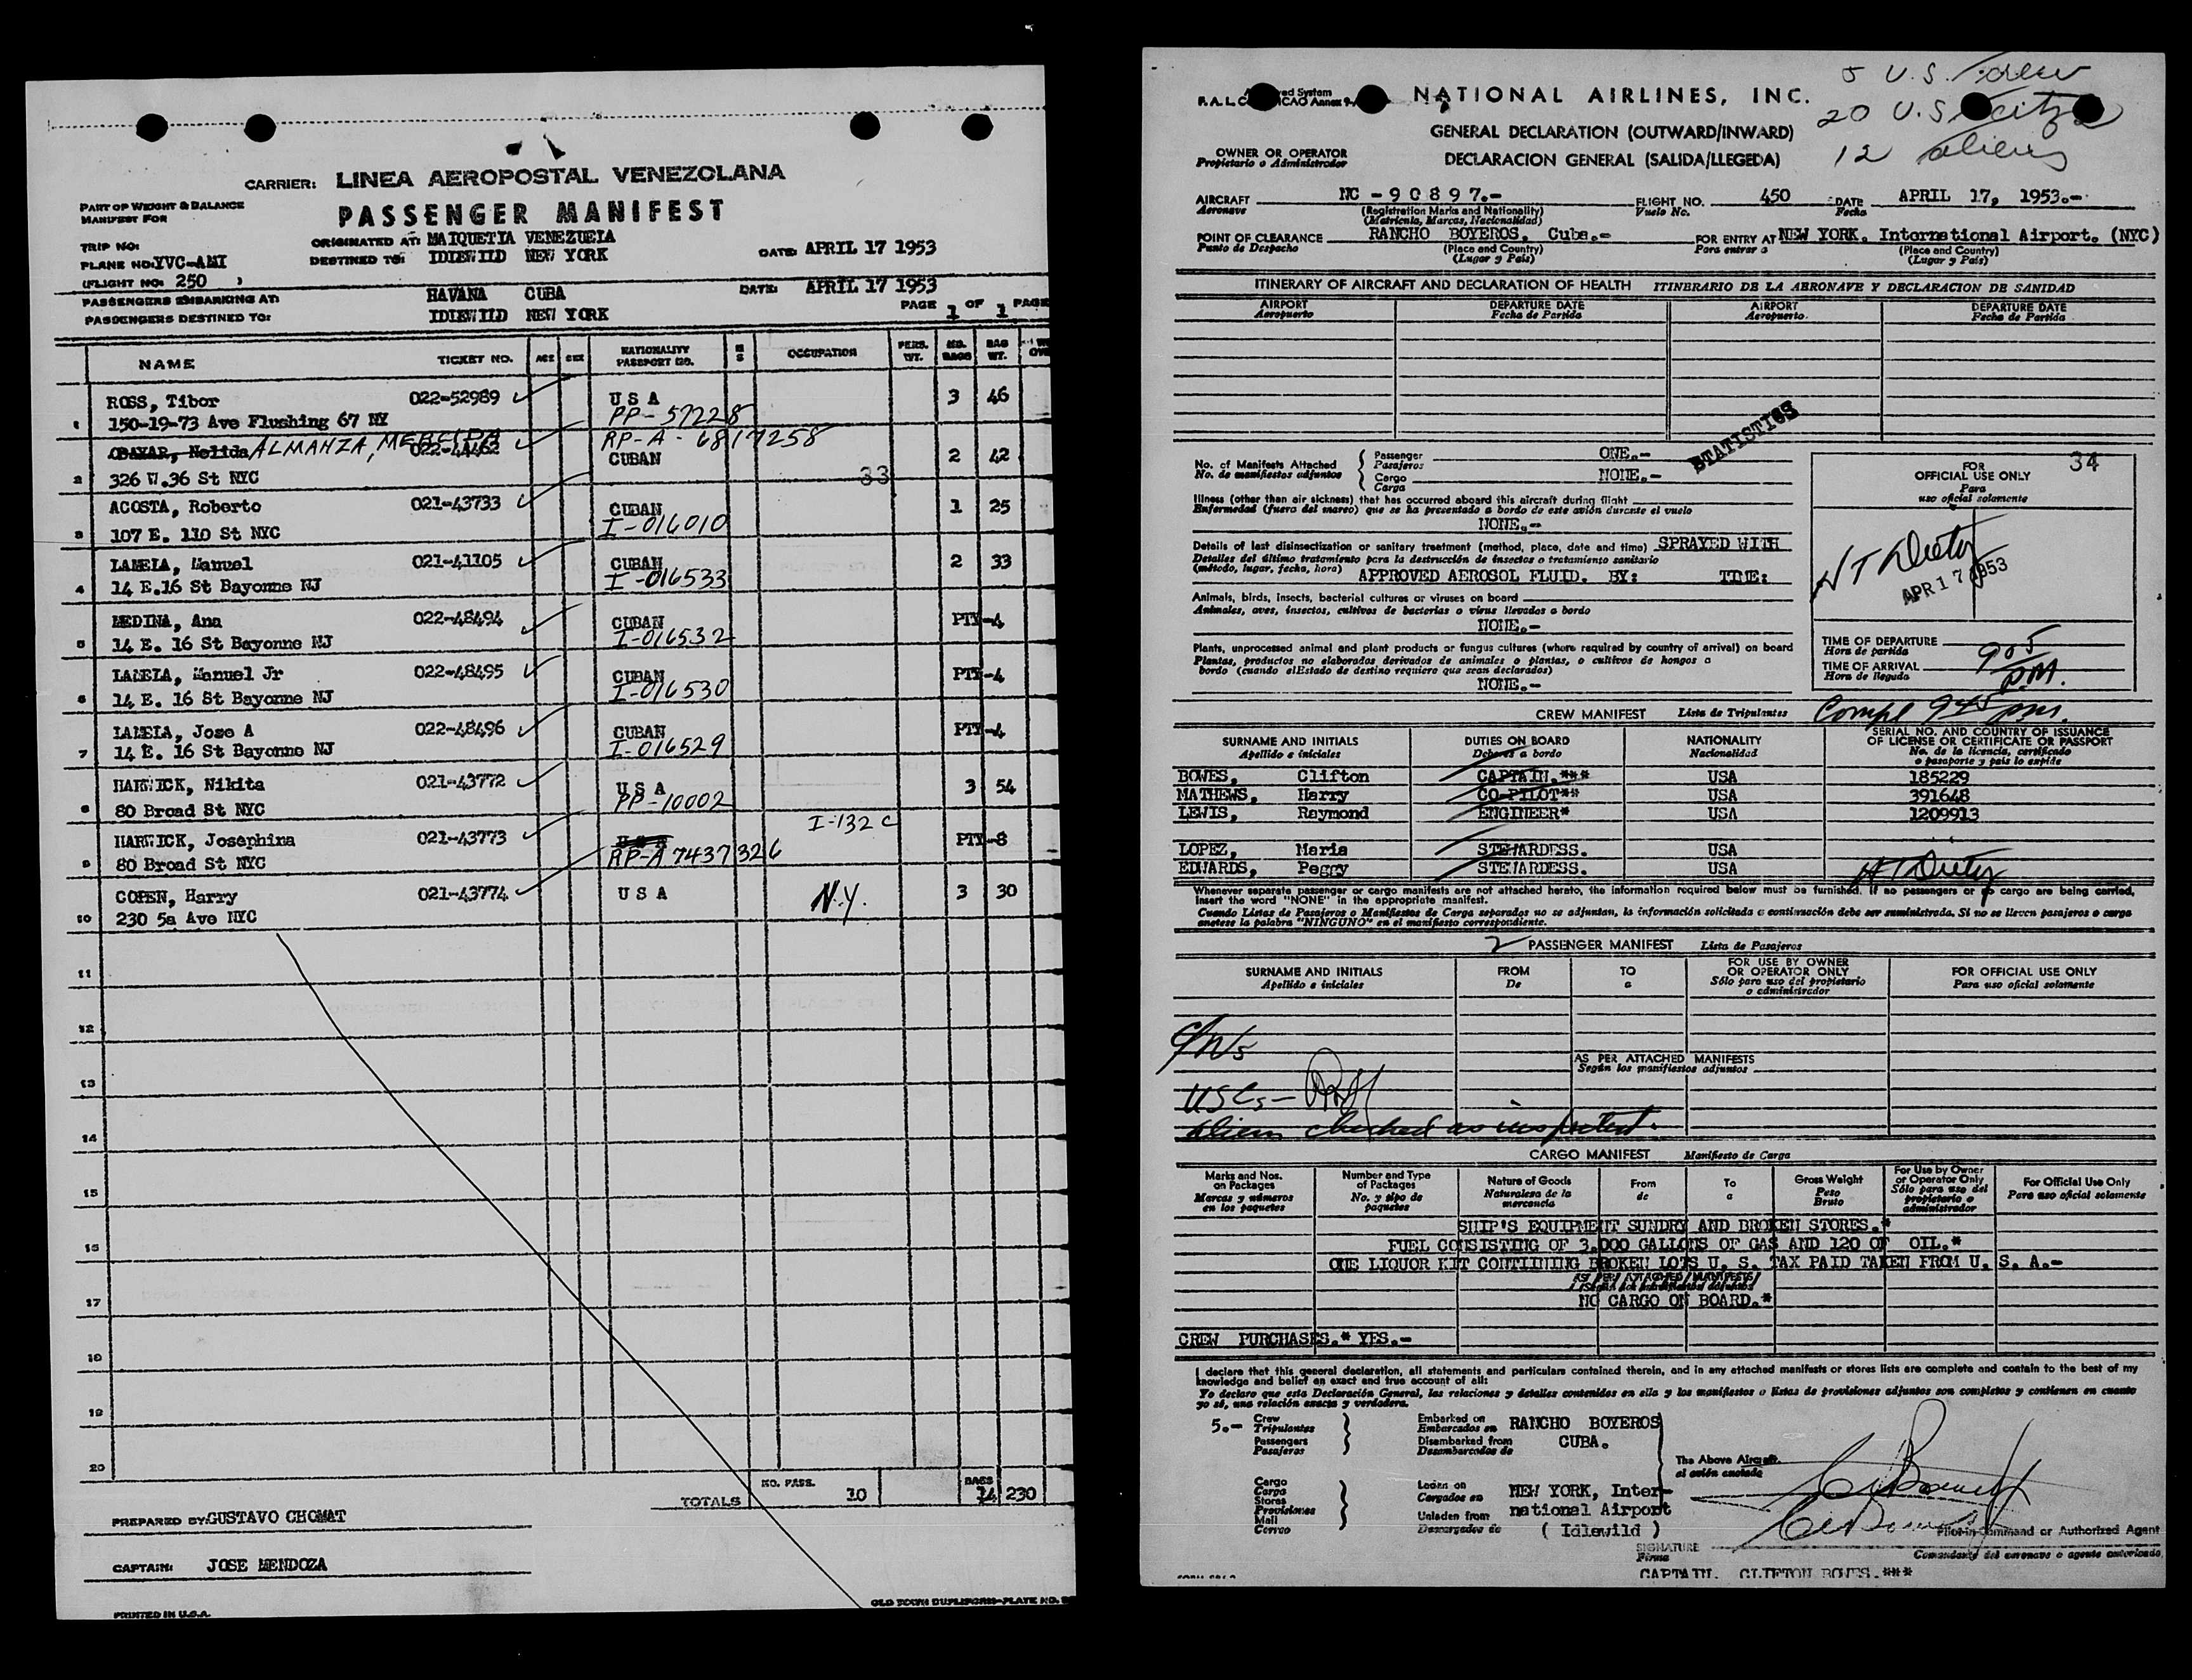 CARRIER: LINEA AEROPOSTAL VENEZOLANA
PART OF WEIGHT & BALANCE
MANIFEST FOR
PASSENGER MANIFEST
TRIP NO:
ORIGINATED AT: MAIQUETIA VENEZUEIA
DATE: APRIL 17 1953
PLANE NO: YVC-AMI
DESTINED TO: IDIEWILD NEW YORK
(FLIGHT NO: 250 )
PASSENGERS EMBARKING AT: HAVANA CUBA
DATE: APRIL 17 1953
PASSENGERS DESTINED TO: IDIEWILD NEW YORK
PAGE 1 OF 1 PAGE
NAME TICKET NO. AGE SEX NATIONALITY PASSPORT NO. M S OCCUPATION PERS. WT. NO. BAGS BAG WT.
ROSS, Tibor 022-52989 U S A 3 46
1 150-19-73 Ave Flushing 67 NY PP-57228
OBAYAR, Nelida ALMANZA, MERCEDA 022-44462 RP-A-6817258 CUBAN 2 42
2 326 W.36 St NYC 33
ACOSTA, Roberto 021-43733 CUBAN 1 25
3 107 E. 110 St NYC I-016010
LAMELA, Manuel 021-41105 CUBAN 2 33
4 14 E.16 St Bayonne NJ I-016533
MEDINA, Ana 022-48494 CUBAN PTY-4
5 14 E. 16 St Bayonne NJ I-016532
LAMELA, Manuel Jr 022-48495 CUBAN PTY-4
6 14 E. 16 St Bayonne NJ I-016530
LAMELA, Jose A 022-48496 CUBAN PTY-4
7 14 E. 16 St Bayonne NJ I-016529
HARWICK, Nikita 021-43772 U S A 3 54
8 80 Broad St NYC PP-10002
I-132 c
HARWICK, Josephina 021-43773 U S A PTY-8
9 80 Broad St NYC RP-A 7437326
COPEN, Harry 021-43774 U S A N.Y. 3 30
10 230 5a Ave NYC
11
12
13
14
15
16
17
18
19
20
TOTALS NO. PASS. 10 BAGS 14 230
PREPARED BY: GUSTAVO CHOMAT
CAPTAIN: JOSE MENDOZA
PRINTED IN U.S.A.
5 U.S. Crew
20 U.S. citz
12 aliens
NATIONAL AIRLINES, INC.
GENERAL DECLARATION (OUTWARD/INWARD)
OWNER OR OPERATOR
Propietario o Administrador
DECLARACION GENERAL (SALIDA/LLEGEDA)
AIRCRAFT NC-90897.- FLIGHT NO. 450 DATE APRIL 17, 1953.-
Aeronave (Registration Marks and Nationality) Vuelo No. Fecha
(Matricula, Marcas, Nacionalidad)
POINT OF CLEARANCE RANCHO BOYEROS, Cuba.- FOR ENTRY AT NEW YORK. International Airport. (NYC)
Punto de Despacho (Place and Country) Para entrar a (Place and Country)
(Lugar y Pais) (Lugar y Pais)
ITINERARY OF AIRCRAFT AND DECLARATION OF HEALTH ITINERARIO DE LA AERONAVE Y DECLARACION DE SANIDAD
AIRPORT DEPARTURE DATE AIRPORT DEPARTURE DATE
Aeropuerto Fecha de Partida Aeropuerto Fecha de Partida
STATISTICS
No. of Manifests Attached Passenger ONE.-
No. de manifiestos adjuntos Pasajeros
Cargo NONE.-
Carga
FOR 34
OFFICIAL USE ONLY
Para
uso oficial solamente
Illness (other than air sickness) that has occurred aboard this aircraft during flight
Enfermedad (fuera del mareo) que se ha presentado a bordo de este avión durante el vuelo
NONE.-
Details of last disinsectization or sanitary treatment (method, place, date and time) SPRAYED WITH
Detalles del último tratamiento para la destrucción de insectos o tratamiento sanitario
(método, lugar, fecha, hora) APPROVED AEROSOL FLUID. BY: TIME:
APR 17 1953
Animals, birds, insects, bacterial cultures or viruses on board
Animales, aves, insectos, cultivos de bacterias o virus llevados a bordo
NONE.-
Plants, unprocessed animal and plant products or fungus cultures (where required by country of arrival) on board
Plantas, productos no elaborados derivados de animales o plantas, o cultivos de hongos a
bordo (cuando elEstado de destino requiere que sean declarados)
NONE.-
TIME OF DEPARTURE
Hora de partida
TIME OF ARRIVAL 905 P.M.
Hora de llegada
CREW MANIFEST Lista de Tripulantes Compl 945 pm.
SURNAME AND INITIALS DUTIES ON BOARD NATIONALITY SERIAL NO. AND COUNTRY OF ISSUANCE OF LICENSE OR CERTIFICATE OR PASSPORT
Apellido e iniciales Deberes a bordo Nacionalidad No. de la licencia, certificado o pasaporte y pais lo expide
BOWES, Clifton CAPTAIN.*** USA 185229
MATHEWS, Harry CO-PILOT** USA 391648
LEWIS, Raymond ENGINEER* USA 1209913
LOPEZ, Maria STEWARDESS. USA
EDWARDS, Peggy STEWARDESS. USA
Whenever separate passenger or cargo manifests are not attached hereto, the information required below must be furnished. If no passengers or no cargo are being carried,
insert the word "NONE" in the appropriate manifest.
Cuando Listas de Pasajeros o Manifiestos de Carga separados no se adjuntan, la información solicitada a continuación debe ser suministrada. Si no se llevan pasajeros o carga
anotese la palabra "NINGUNO" en el manifiesto correspondiente.
2 PASSENGER MANIFEST Lista de Pasajeros
SURNAME AND INITIALS FROM TO FOR USE BY OWNER OR OPERATOR ONLY FOR OFFICIAL USE ONLY
Apellido e iniciales De a Sólo para uso del propietario o administrador Para uso oficial solamente
AS PER ATTACHED MANIFESTS
Según los manifiestos adjuntos
USCs-
aliens checked as inspected.
CARGO MANIFEST Manifiesto de Carga
Marks and Nos. on Packages Number and Type of Packages Nature of Goods From To Gross Weight For Use by Owner or Operator Only For Official Use Only
Marcas y números en los paquetes No. y tipo de paquetes Naturaleza de la mercancía de a Peso Bruto Sólo para uso del propietario o administrador Para uso oficial solamente
SHIP'S EQUIPMENT SUNDRY AND BROKEN STORES.*
FUEL CONSISTING OF 3,000 GALLONS OF GAS AND 120 OF OIL.*
ONE LIQUOR KIT CONTIINING BROKEN LOTS U. S. TAX PAID TAKEN FROM U. S. A.-
NO CARGO ON BOARD.*
CREW PURCHASES.* YES.-
I declare that this general declaration, all statements and particulars contained therein, and in any attached manifests or stores lists are complete and contain to the best of my
knowledge and belief an exact and true account of all:
Yo declaro que esta Declaración General, las relaciones y detalles contenidos en ella y los manifiestos o listas de provisiones adjuntos son completos y contienen en cuanto
yo sé, una relación exacta y verdadera.
5.- Crew Embarked on RANCHO BOYEROS
Tripulantes Embarcados en
Passengers Disembarked from CUBA.
Pasajeros Desembarcados de
The Above Aircraft.
al avión anotado
Cargo Laden on NEW YORK, Inter-
Carga Cargados en
Stores national Airport
Provisiones Unladen from
Mail Descargados de ( Idlewild )
Correo
Pilot-in-Command or Authorized Agent
SIGNATURE
Firma Comandante del aeronave o agente autorizado
CAPTAIN. CLIFTON BOWES.***